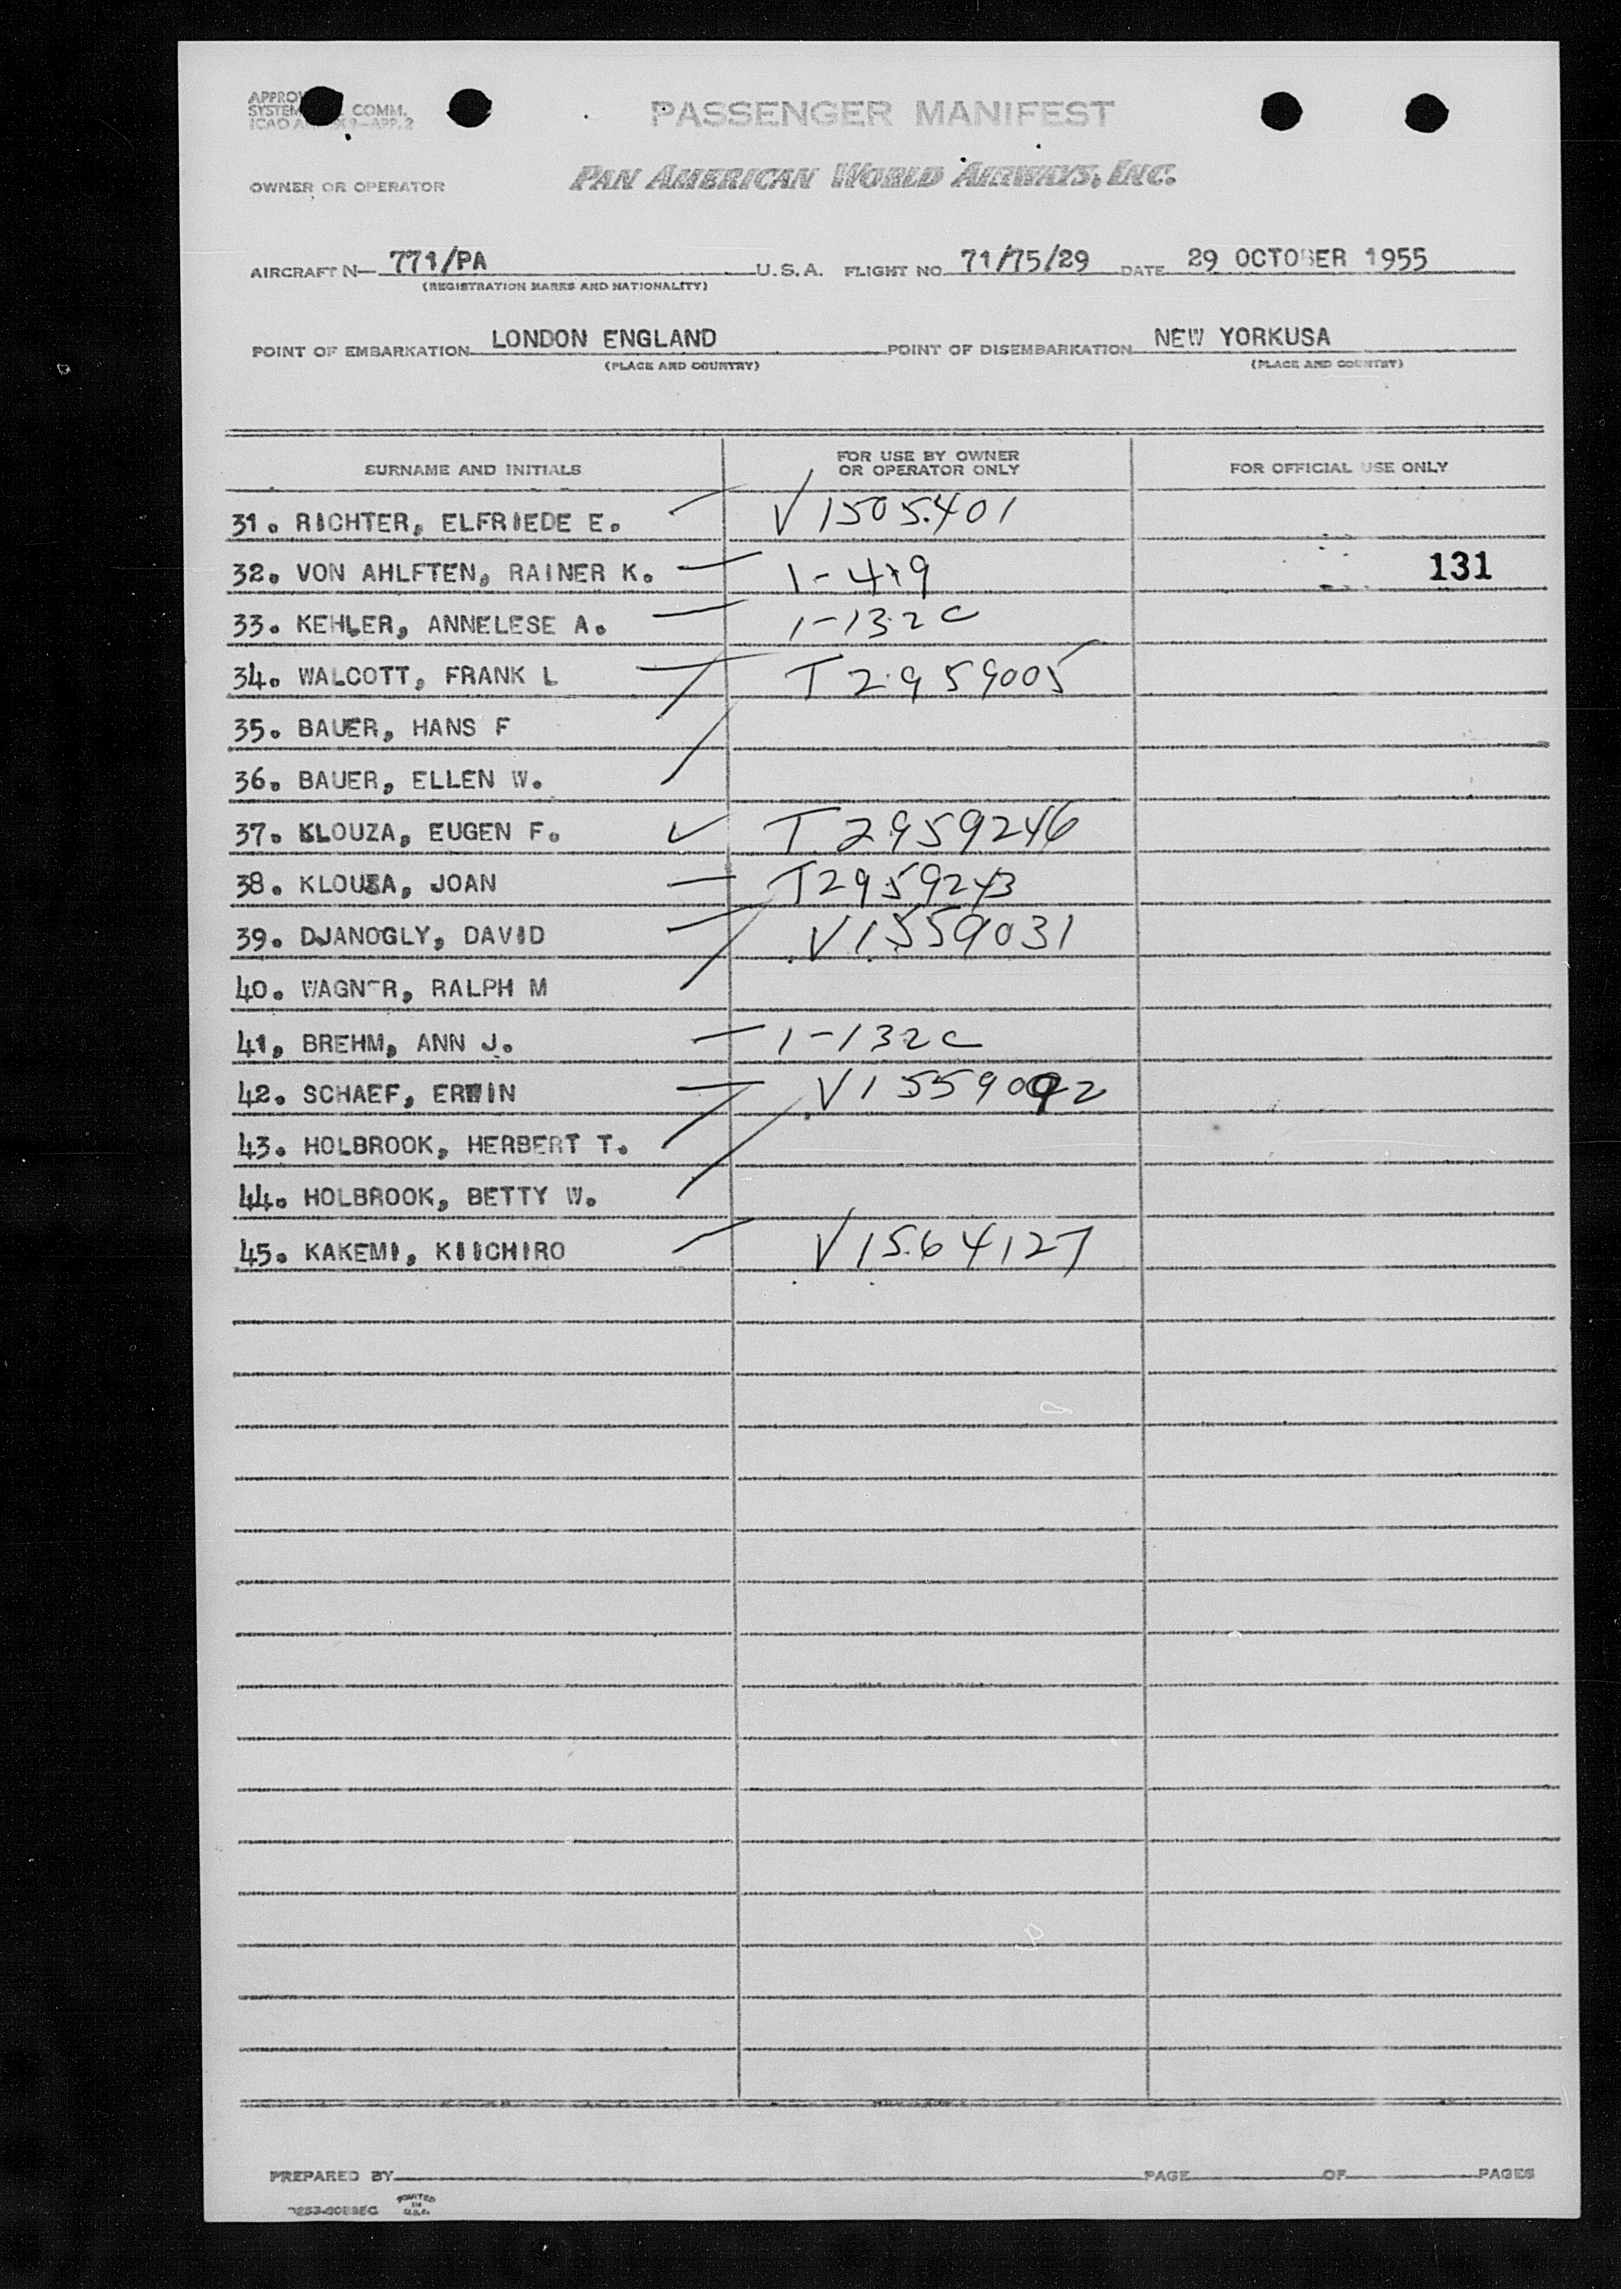 PASSENGER MANIFEST
COMM.
OWNER OR OPERATOR PAN AMERICAN WORLD AIRWAYS, INC.
AIRCRAFT N— 771/PA U.S.A. FLIGHT NO. 71/75/29 DATE 29 OCTOBER 1955
(REGISTRATION MARKS AND NATIONALITY)
POINT OF EMBARKATION LONDON ENGLAND POINT OF DISEMBARKATION NEW YORKUSA
(PLACE AND COUNTRY) (PLACE AND COUNTRY)
SURNAME AND INITIALS FOR USE BY OWNER OR OPERATOR ONLY FOR OFFICIAL USE ONLY
31. RICHTER, ELFRIEDE E. V1505401
32. VON AHLFTEN, RAINER K. 1-419 131
33. KEHLER, ANNELESE A. 1-132C
34. WALCOTT, FRANK L T2959005
35. BAUER, HANS F
36. BAUER, ELLEN W.
37. KLOUZA, EUGEN F. T2959246
38. KLOUZA, JOAN T2959243
39. DJANOGLY, DAVID V1559031
40. WAGNER, RALPH M
41, BREHM, ANN J. 1-132C
42. SCHAEF, ERWIN V1559092
43. HOLBROOK, HERBERT T.
44. HOLBROOK, BETTY W.
45. KAKEMI, KIICHIRO V1564127
PREPARED BY PAGE OF PAGES
PRINTED IN U.S.A.